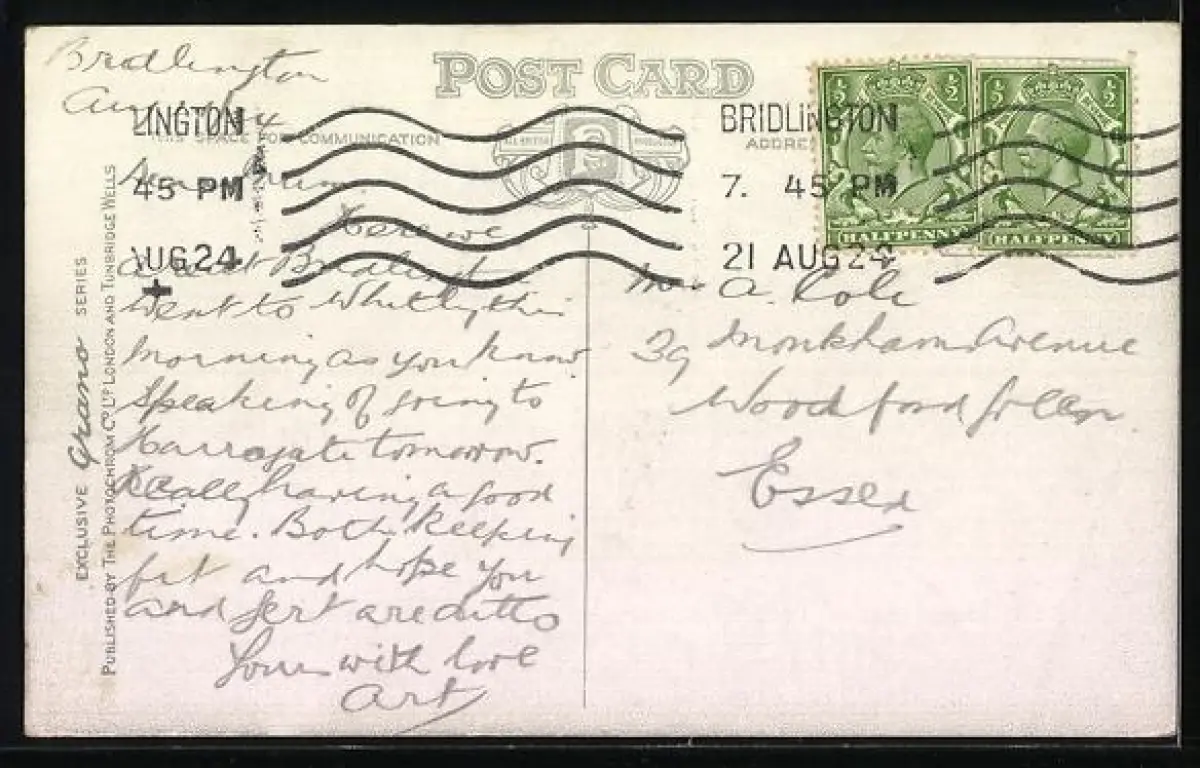 Bridlington
POST CARD
THIS SPACE FOR COMMUNICATION
ADDRE
LINGTON
45 PM
AUG 24
BRIDLINGTON
7. 45 PM
21 AUG 24
1/2 1/2
HALFPENNY
1/2 1/2
HALFPENNY
EXCLUSIVE Grano SERIES
PUBLISHED BY THE PHOTOCHROM CO. LTD. LONDON AND TUNBRIDGE WELLS
Dear Mum,
Here we
are at Bridlington
Went to Whitby this
morning as you know
Speaking of going to
Harrogate tomorrow.
Really having a good
time. Both keeping
fit and hope you
and Gert are ditto
Yours with love
Art
Mrs A. Cole
39 Monkham Avenue
Woodford Green
Essex